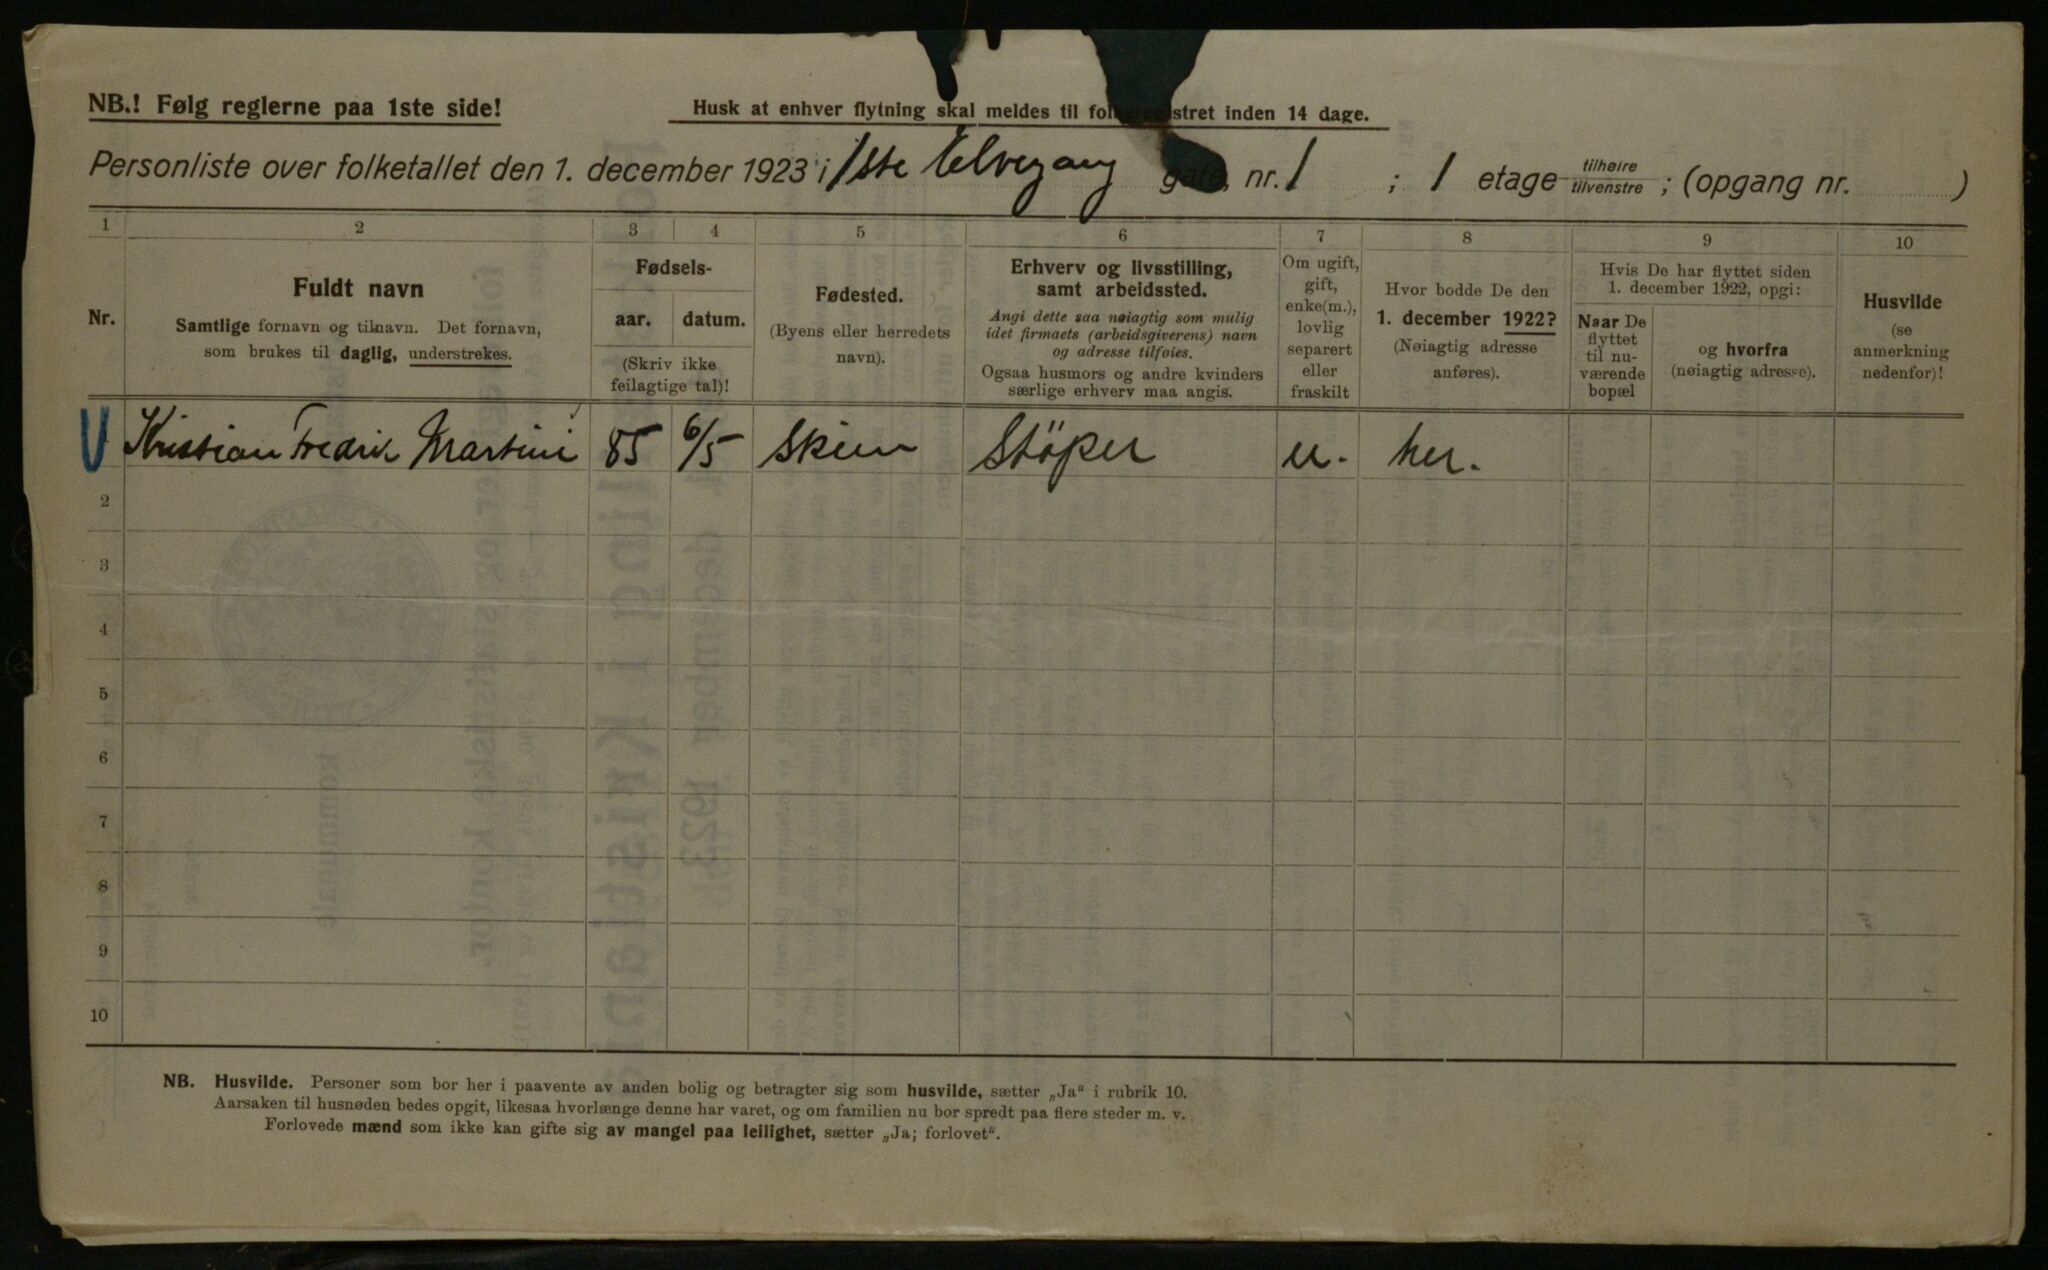 NB.! Følg reglerne paa 1ste side!
Husk at enhver flytning skal meldes til folkeregistret inden 14 dage.
Personliste over folketallet den 1. december 1923 i 1ste Elvegang gate, nr. 1 ; 1 etage tilhøire tilvenstre ; (opgang nr. )
1 2 3 4 5 6 7 8 9 10
Nr.
Fuldt navn
Samtlige fornavn og tilnavn. Det fornavn,
som brukes til daglig, understrekes.
Fødsels-
aar. datum.
(Skriv ikke
feilagtige tal)!
Fødested.
(Byens eller herredets
navn).
Erhverv og livsstilling,
samt arbeidssted.
Angi dette saa nøiagtig som mulig
idet firmaets (arbeidsgiverens) navn
og adresse tilføies.
Ogsaa husmors og andre kvinders
særlige erhverv maa angis.
Om ugift,
gift,
enke(m.),
lovlig
separert
eller
fraskilt
Hvor bodde De den
1. december 1922?
(Nøiagtig adresse
anføres).
Hvis De har flyttet siden
1. december 1922, opgi:
Naar De
flyttet
til nu-
værende
bopæl
og hvorfra
(nøiagtig adresse).
Husvilde
(se
anmerkning
nedenfor)!
Kristian Fredrik Martini 85 6/5 Skien Støper u. her.
2
3
4
5
6
7
8
9
10
NB. Husvilde. Personer som bor her i paavente av anden bolig og betragter sig som husvilde, sætter „Ja“ i rubrik 10.
Aarsaken til husnøden bedes opgit, likesaa hvorlænge denne har varet, og om familien nu bor spredt paa flere steder m. v.
Forlovede mænd som ikke kan gifte sig av mangel paa leilighet, sætter „Ja; forlovet“.